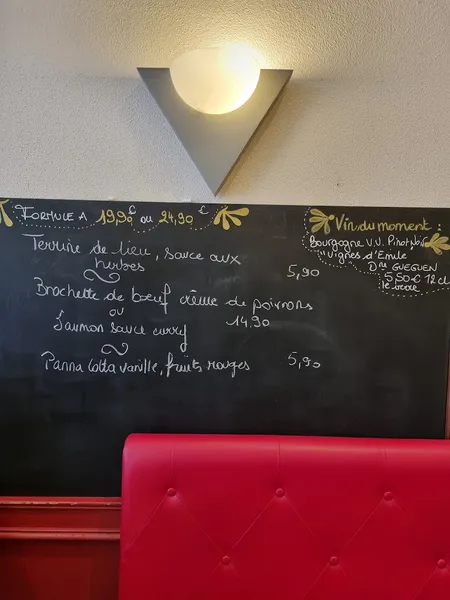 FORMULE A 19,90€ ou 24,90€
Terrine de lieu, sauce aux
herbes 5,90
Brochette de bœuf crème de poivrons
ou 14.90
Saumon sauce curry
Panna Cotta vanille, fruits rouges 5,90
Vin du moment :
Bourgogne V.V. Pinot Noir
"Vignes d'Emile
Dne GUEGUEN
5,50€ 12 cl
le verre